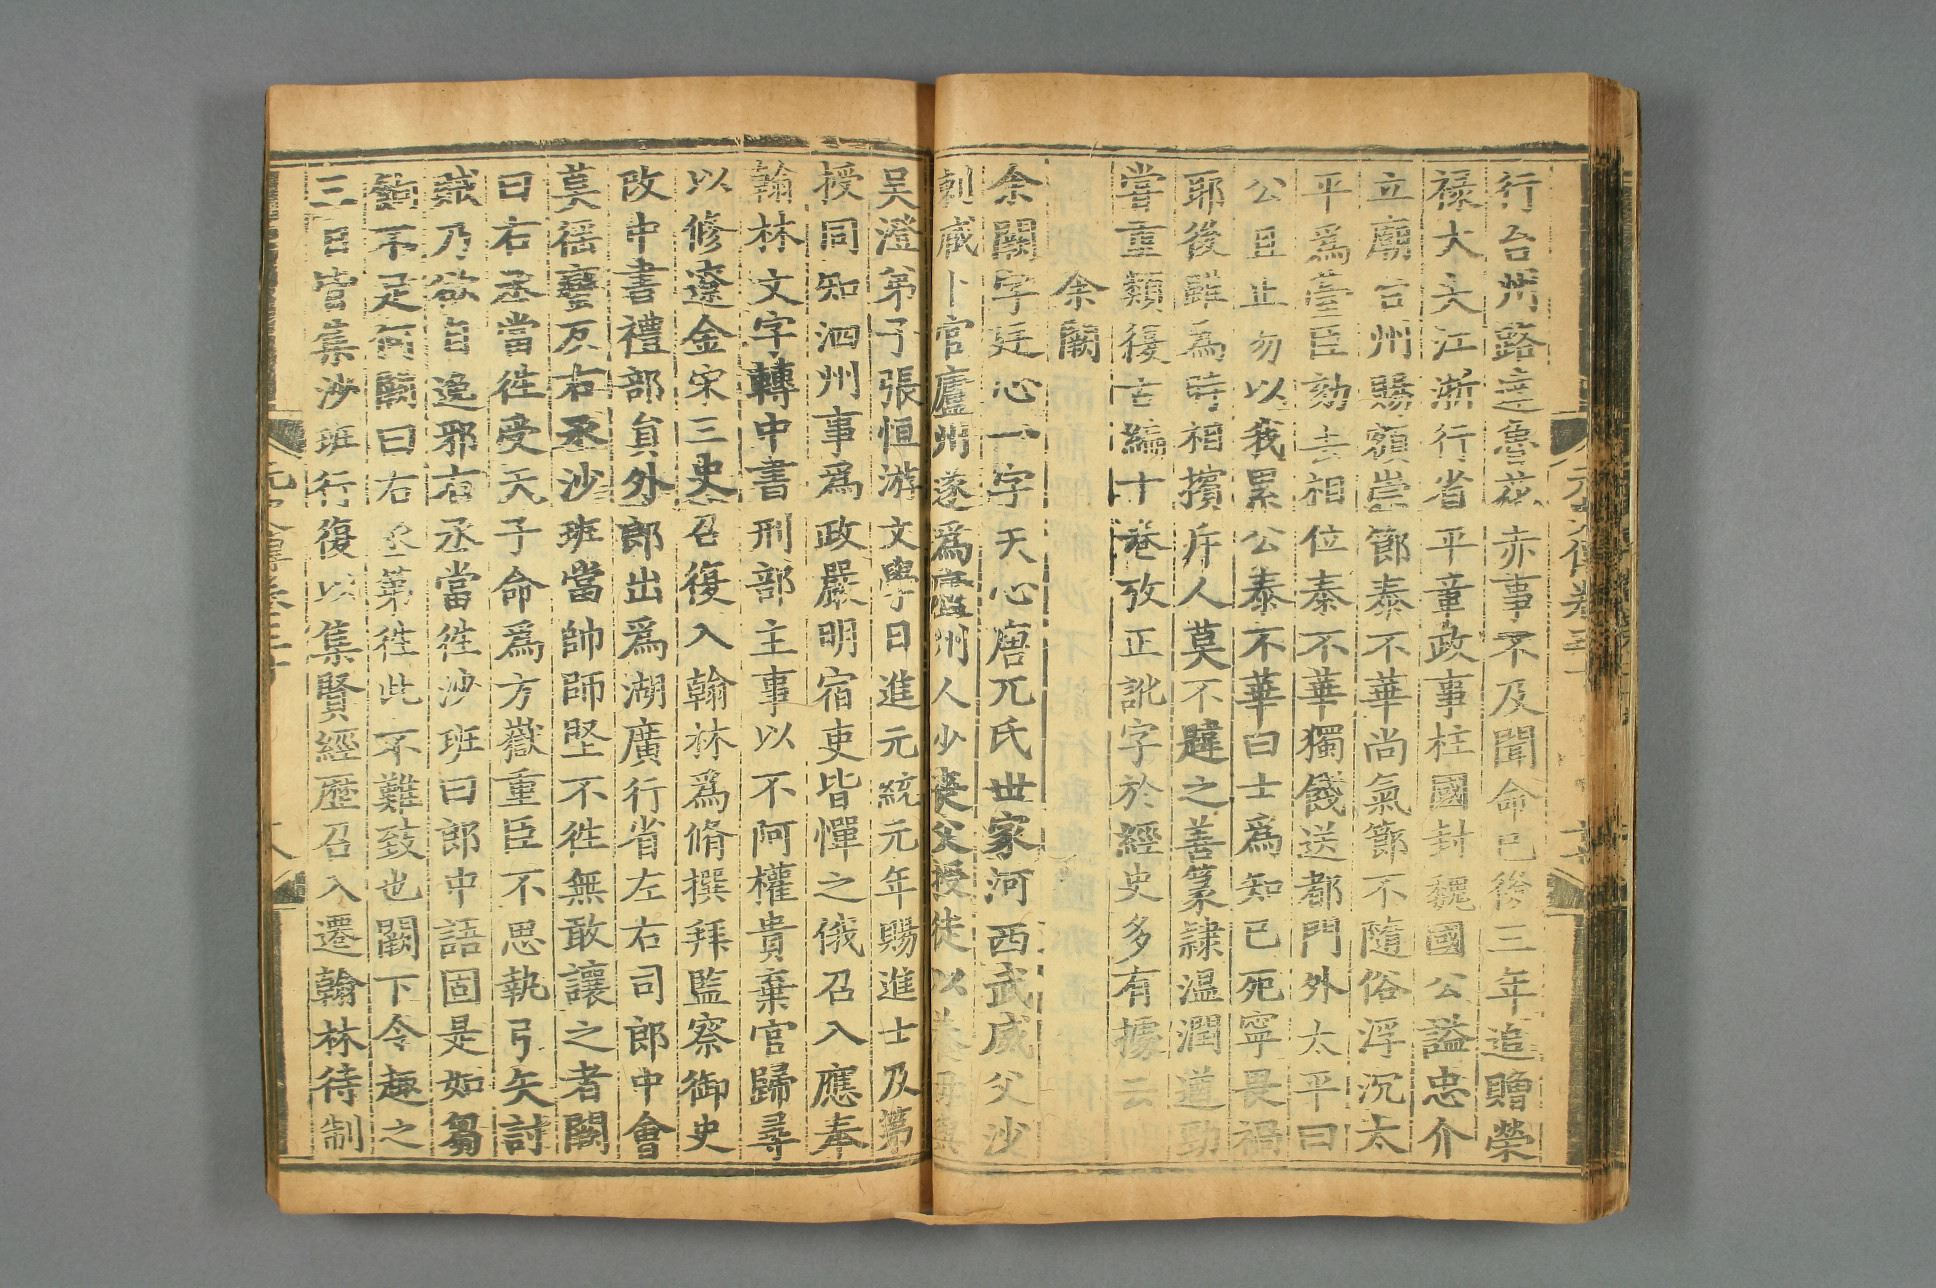 行台州路達魯花赤事不及聞命已後三年追贈榮
祿大夫江淛行省平章政事柱國封魏國公謚忠介
立廟台州賜額崇節泰不華尚氣節不隨俗浮沉太
平爲臺臣劾去相位泰不華獨餞送都門外太平曰
公且止勿以我累公泰不華曰士爲知已死寧畏禍
耶後雖爲時相擯斥人莫不韙之善篆隷温潤遒勁
嘗重類復古編十卷攷正訛字於經史多有據云
余闕
余闕字廷心一字天心唐兀氏世家河西武威父沙
剌臧卜官廬州遂爲廬州人少喪父授徒以養母與
吴澄弟子張恒游文學日進元統元年賜進士及第
授同知泗州事爲政嚴明宿吏皆憚之俄召入應奉
翰林文字轉中書刑部主事以不阿權貴棄官歸尋
以修遼金宋三史召復入翰林爲脩撰拜監察御史
改中書禮部負外郎出爲湖廣行省左右司郎中會
莫徭蠻反右丞沙班當帥師堅不徃無敢讓之者闕
曰右丞當徃受天子命爲方嶽重臣不思執弓矢討
賊乃欲自逸邪右丞當徃沙班曰郎中語固是如芻
餉不足何闕曰右丞第徃此不難致也闕下令趣之
三日皆集沙班行復以集賢經歷召入遷翰林待制